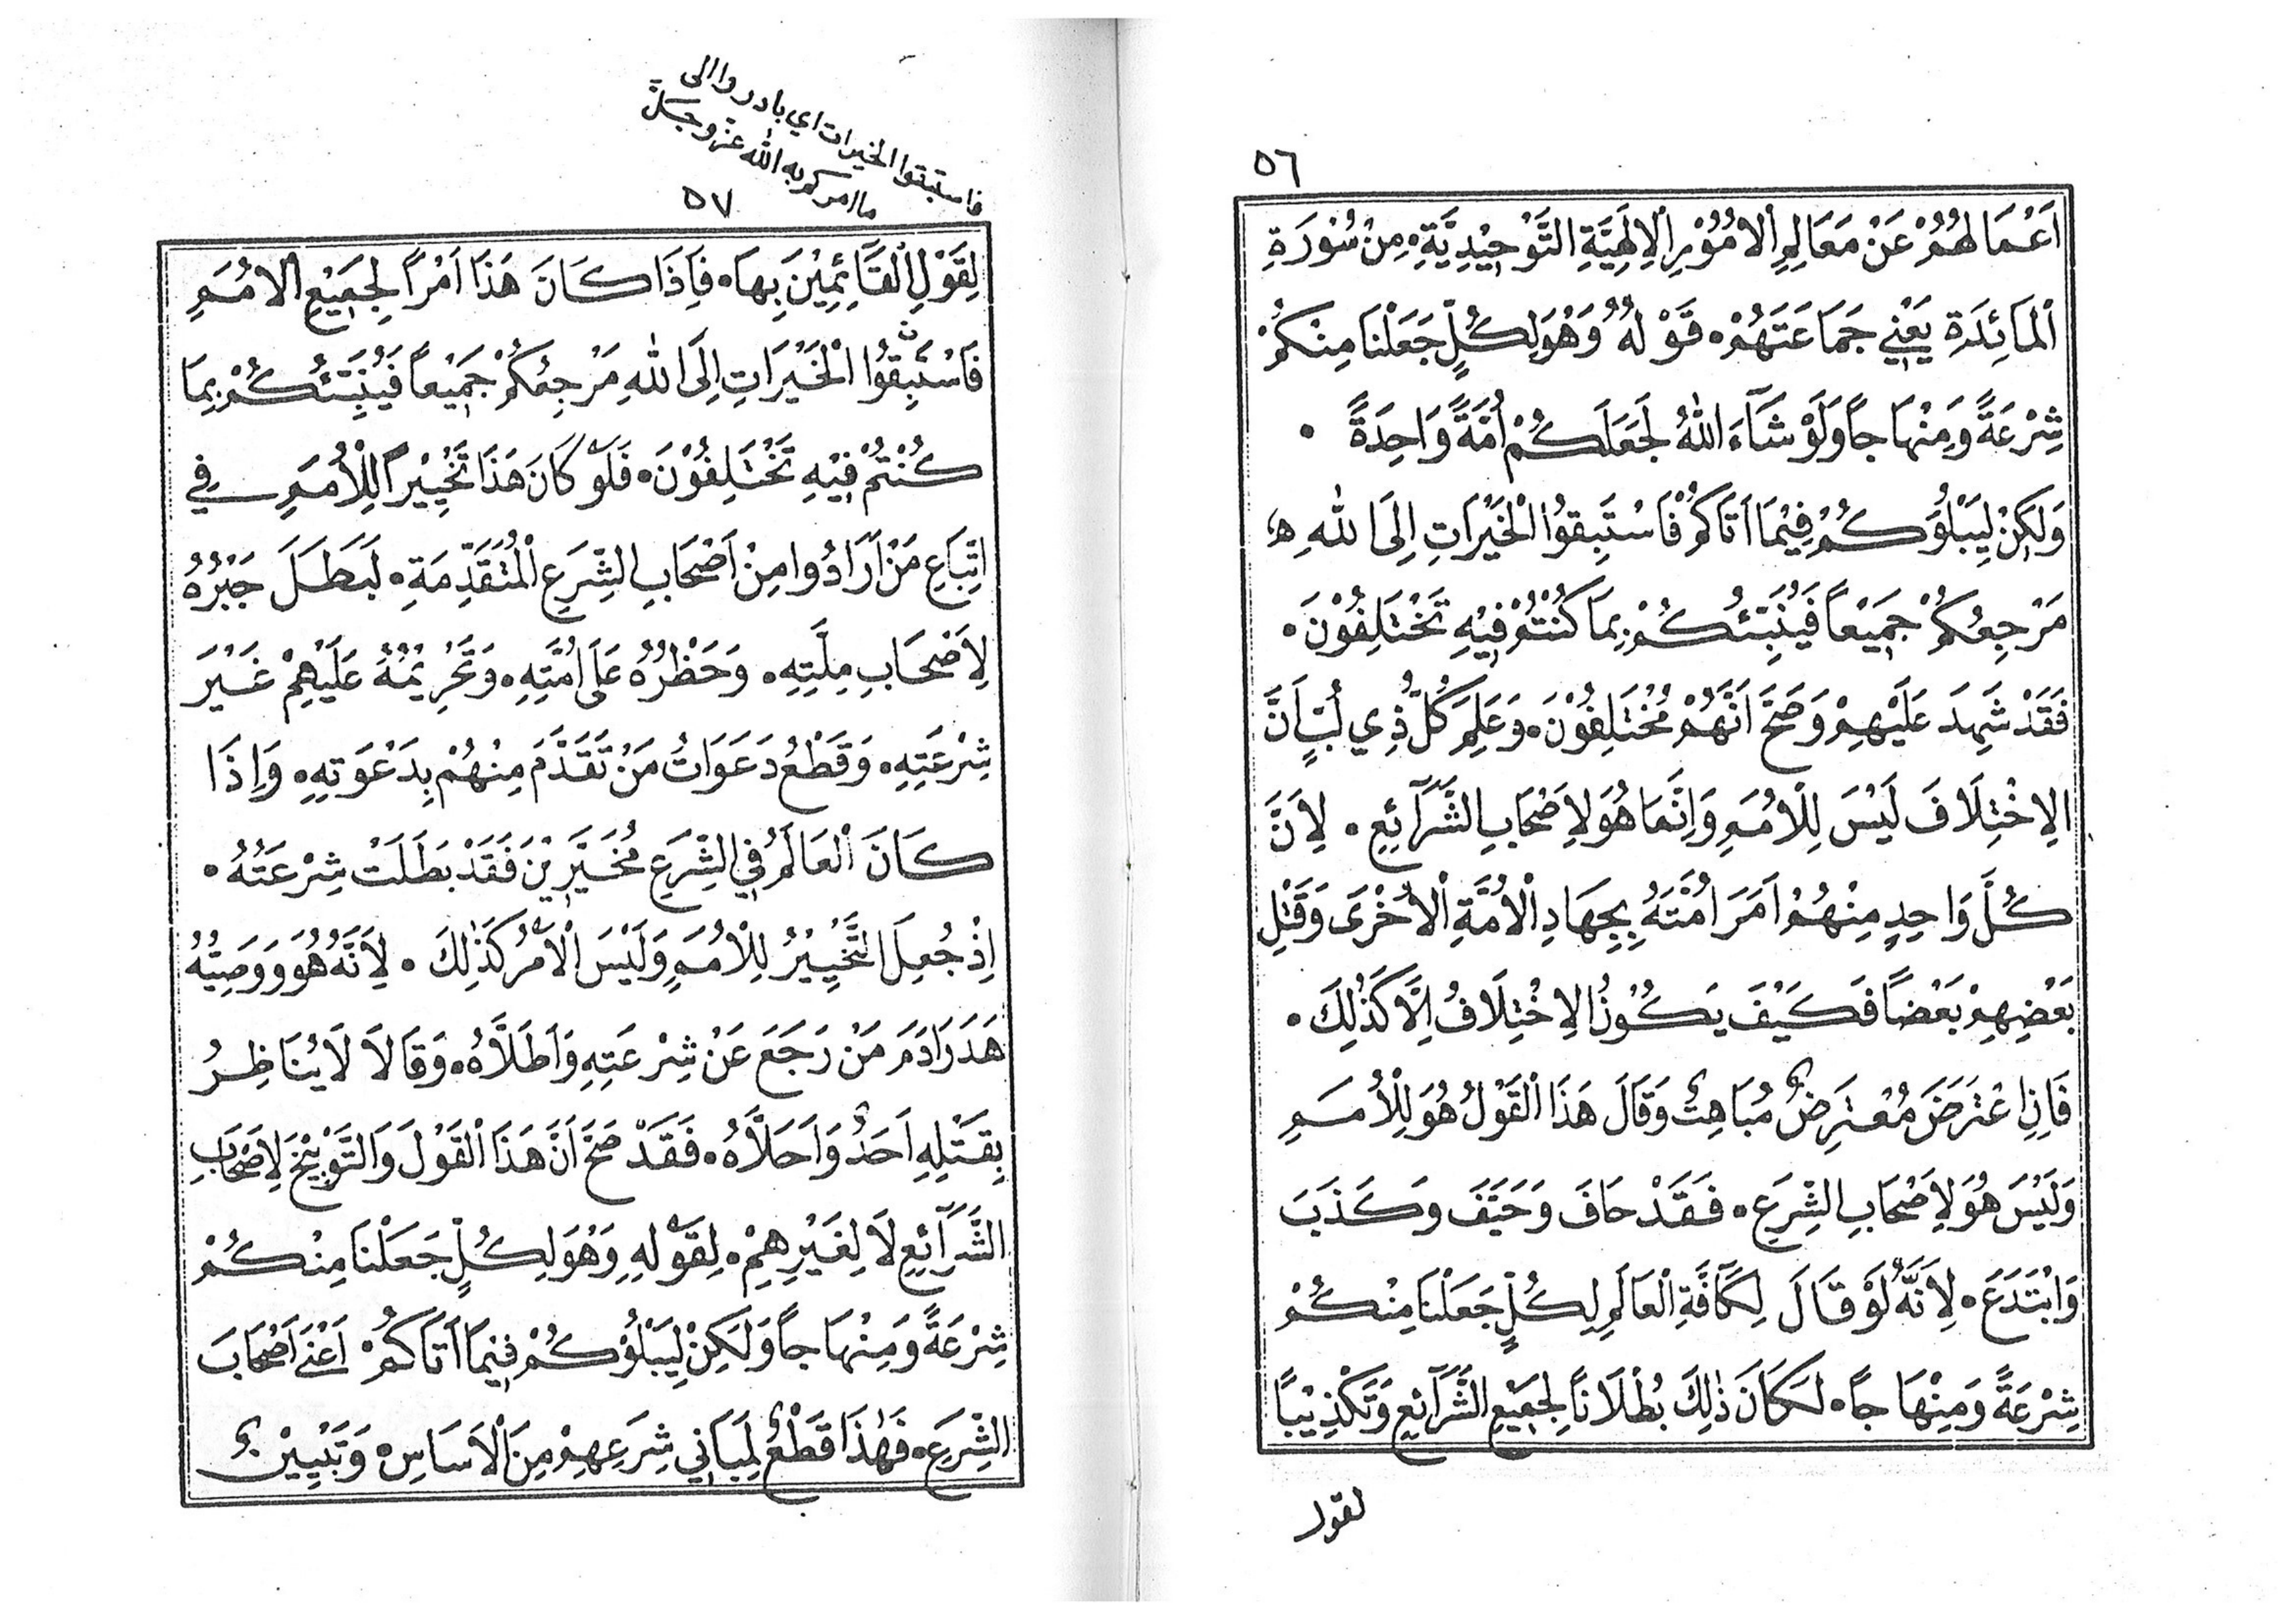 ٥٦
اَعْمَالُهُمْ عَنْ مَعَالِمِ اْلاُمُوْرِ اْلاِلَهِيَّةِ التَّوْحِيْدِيَّةِ، مِنْ سُوْرَةِ
اْلمَائِدَةِ يَعْنِي جَمَاعَتَهُمْ، قَوْلُهُ وَهُوَ لِكُلٍّ جَعَلْنَا مِنْكُمْ
شِرْعَةً وَمِنْهَاجاً وَلَوْ شَآءَ اللهُ لَجَعَلَكُمْ اُمَّةً وَاحِدَةً ٠
وَلَكِنْ لِيَبْلُوَكُمْ فِيْمَا اَتَاكُمْ فَاسْتَبِقُوْا الْخَيْرَاتِ اِلَى اللهِ
مَرْجِعُكُمْ جَمِيْعاً فَيُنَبِّئُكُمْ بِمَا كُنْتُمْ فِيْهِ تَخْتَلِفُوْنَ ٠
فَقَدْ شَهِدَ عَلَيْهِمْ وَصَحَّ اَنَّهُمْ مُخْتَلِفُوْنَ، وَعَلِمَ كُلُّ ذِي لُبٍّ اَنَّ
الاِخْتِلَافَ لَيْسَ لِلْاُمَمِ وَاِنَّمَا هُوَ لِاَصْحَابِ الشَّرَآئِعِ ٠ لِاَنَّ
كُلَّ وَاحِدٍ مِنْهُمْ اَمَرَ اُمَّتَهُ بِجِهَادِ اْلاُمَّةِ اْلاُخْرَى وَقَتْلِ
بَعْضِهِمْ بَعْضاً فَكَيْفَ يَكُوْنُ الاِخْتِلَافُ اِلَّا كَذٰلِكَ ٠
فَاِنِ اعْتَرَضَ مُعْتَرِضٌ مُبَاهِتٌ وَقَالَ هَذَا الْقَوْلُ هُوَ لِلْاُمَمِ
وَلَيْسَ هُوَ لِاَصْحَابِ الشِّرَعِ ٠ فَقَدْ حَافَ وَحَيَّفَ وَكَذَبَ
وَابْتَدَعَ ٠ لِاَنَّهُ لَوْ قَالَ لِكَآفَّةِ اْلعَالَمِ لِكُلٍّ جَعَلْنَا مِنْكُمْ
شِرْعَةً وَمِنْهَاجاً ٠ لَكَانَ ذٰلِكَ بُطْلَاناً لِجَمِيْعِ الشَّرَآئِعِ وَتَكْذِيْبًا
لقول
فاستبقوا الخيرات اي بادروا الى
ما امركم به الله عز وجل
٥٧
لِقَوْلِ اْلقَآئِمِيْنَ بِهَا ٠ فَاِذَا كَانَ هَذَا اَمْراً لِجَمِيْعِ اْلاُمَمِ
فَاسْتَبِقُوْا الْخَيْرَاتِ اِلَى اللهِ مَرْجِعُكُمْ جَمِيْعاً فَيُنَبِّئُكُمْ بِمَا
كُنْتُمْ فِيْهِ تَخْتَلِفُوْنَ ٠ فَلَوْ كَانَ هَذَا تَخْيِيْراً لِلْاُمَمِ فِي
اِتِّبَاعِ مَنْ اَرَادُوا مِنْ اَصْحَابِ الشِّرَعِ الْمُتَقَدِّمَةِ ٠ لَبَطَلَ جَبْرُهُ
لِاَصْحَابِ مِلَّتِهِ ٠ وَحَظْرُهُ عَلَى اُمَّتِهِ ٠ وَتَحْرِيْمُهُ عَلَيْهِمْ غَيْرَ
شِرْعَتِهِ ٠ وَقَطْعُ دَعَوَاتُ مَنْ تَقَدَّمَ مِنْهُمْ بِدَعْوَتِهِ ٠ وَاِذَا
كَانَ اْلعَالَمُ فِي الشِّرَعِ مُخَيَّرِيْنَ فَقَدْ بَطَلَتْ شِرْعَتُهُ ٠
اِذْ جُعِلَ التَّخْيِيْرُ لِلْاُمَمِ وَلَيْسَ اْلاَمْرُ كَذٰلِكَ ٠ لِاَنَّهُ هُوَ وَوَصِيُّهُ
هَدَرَا دَمَ مَنْ رَجَعَ عَنْ شِرْعَتِهِ وَاَطَلَّاهُ ٠ وَقَالَا لَا يُنَاظِرُ
بِقَتْلِهِ اَحَدٌ وَاَحَلَّاهُ ٠ فَقَدْ صَحَّ اَنَّ هَذَا الْقَوْلَ وَالتَّوْبِيْخَ لِاَصْحَابِ
الشَّرَآئِعِ لَا لِغَيْرِهِمْ ٠ لِقَوْلِهِ وَهُوَ لِكُلٍّ جَعَلْنَا مِنْكُمْ
شِرْعَةً وَمِنْهَاجاً وَلَكِنْ لِيَبْلُوَكُمْ فِيْمَا اَتَاكُمْ اَعْنَى اَصْحَابَ
الشِّرَعِ ٠ فَهٰذَا قَطْعٌ لِمَبَانِي شِرَعِهِمْ مِنَ اْلاَسَاسِ ٠ وَتَبْيِيْنٌ